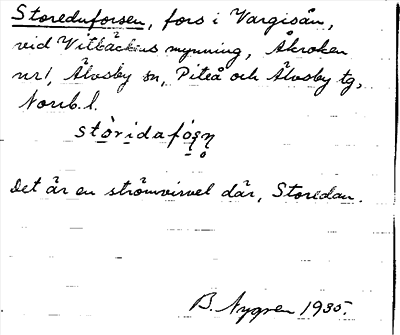 Storeduforsen, fors i Vargisån,
vid Vitbäckens mynning, Åkroken
nr 1, Älvsby sn, Piteå och Älvsby tg,
Norrb. l.
stòridafo̩ṣn̥
Det är en strömvirvel där, Storedan.
B. Nygren 1935.